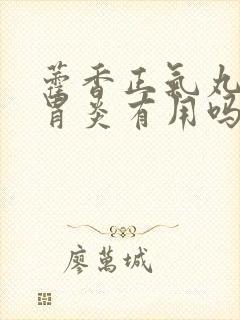 藿香正氣丸
胃炎有用吗
廖萬城